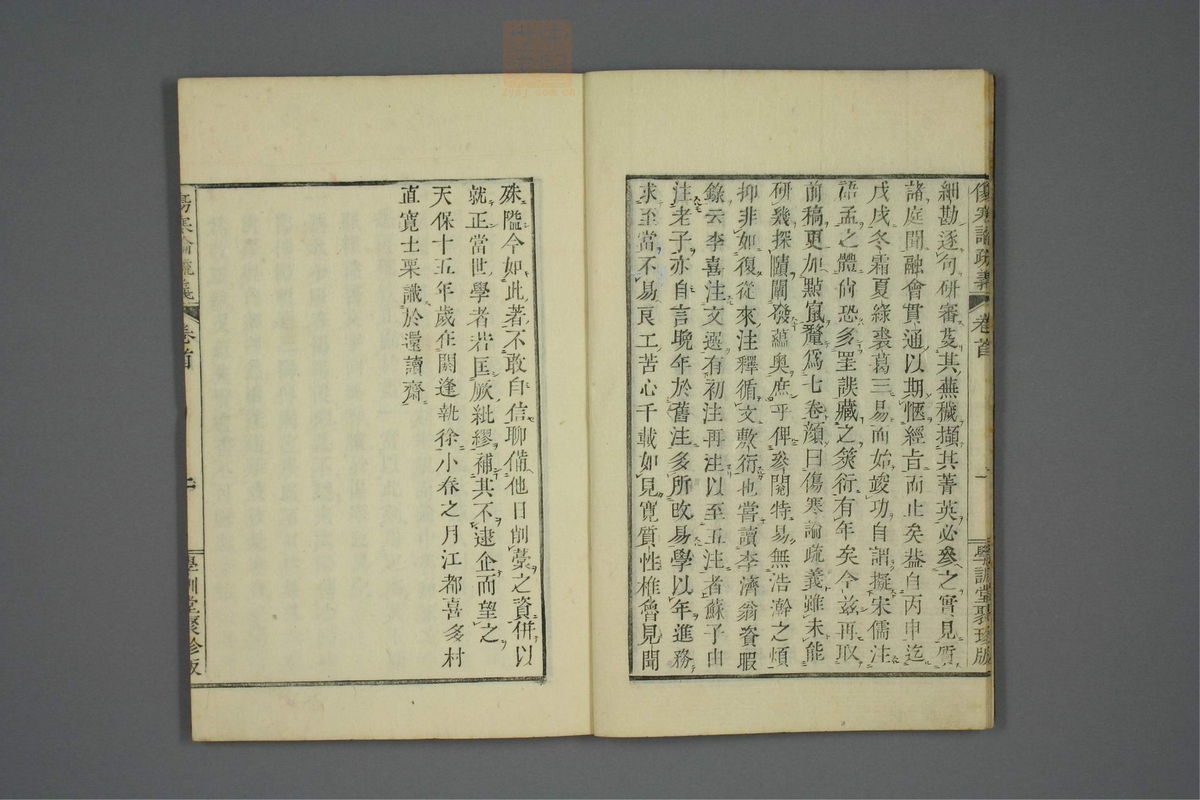 傷寒論疏義 卷首 一 學訓堂聚珍版
細勘逐句研審芟其蕪穢擷其菁英必參之實見質
諸庭聞融會貫通以期愜經旨而止矣葢自丙申迄
戊戌冬霜夏綠裘葛三易而始竣功自謂擬宋儒注
語孟之體尙恐多罣誤藏之篋衍有年矣今茲再取
前稿更加點竄釐爲七卷顏曰傷寒論疏義雖未能
硏幾探賾闡發蘊奥庶乎俾參閱特易無浩瀚之煩
抑非如復從來注釋循文敷衍也嘗讀李濟翁資暇
錄云李善注文選有初注再注以至五注者蘇子由
注老子亦自言晚年於舊注多所改易學以年進務
求至當不易良工苦心千載如見寬質性椎魯見聞
殊隘今如此著不敢自信聊備他日削藁之資併以
就正當世學者若匡厥紕繆補其不逮企而望之
天保十五年歲在閼逢執徐小春之月江都喜多村
直寬士栗識於還讀齋
傷寒論疏義 卷首 學訓堂聚珍版